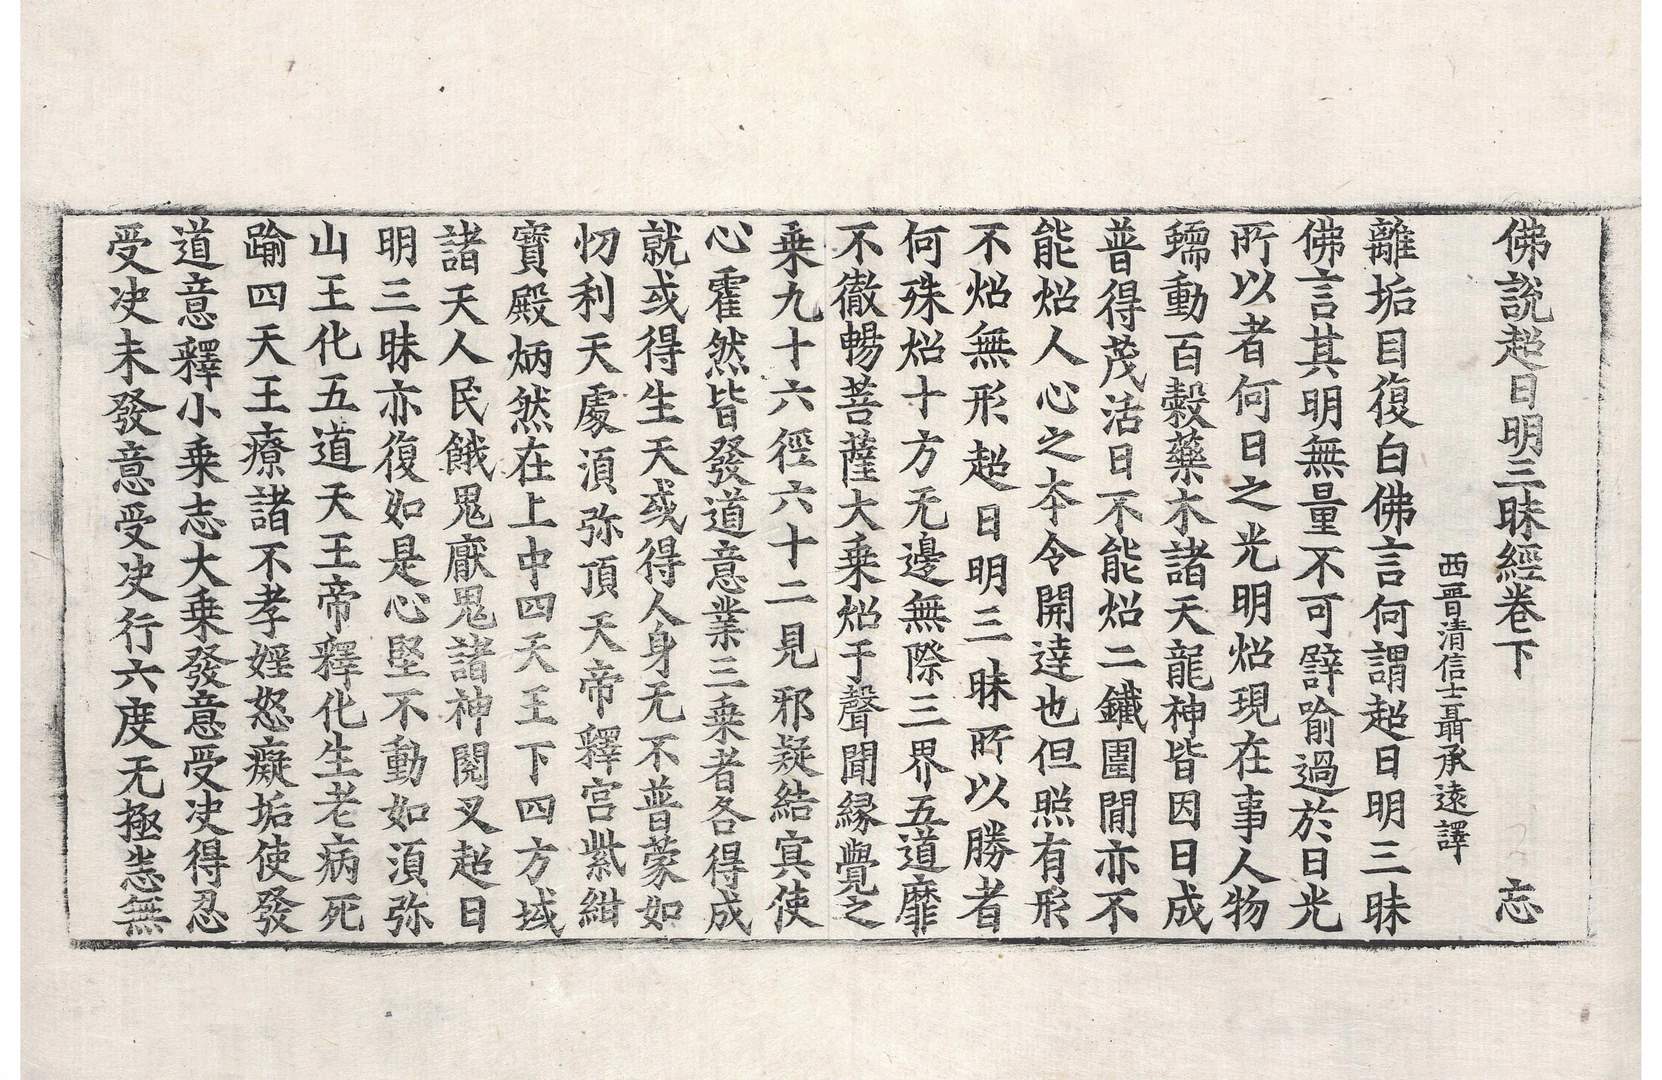 佛說超日明三昧經卷下 忘
西晉清信士聶承遠譯
離垢目復白佛言何謂超日明三昧
佛言其明無量不可譬喻過於日光
所以者何日之光明炤現在事人物
蠕動百穀藥木諸天龍神皆因日成
普得茂活日不能炤二鐵圍間亦不
能炤人心之本令開達也但照有形
不炤無形超日明三昧所以勝者
何殊炤十方无邊無際三界五道靡
不徹暢菩薩大乗炤于聲聞緣覺之
乗九十六徑六十二見邪疑結㝠使
心霍然皆發道意業三乗者各得成
就或得生天或得人身无不普蒙如
忉利天處湏弥頂天帝釋宫紫紺
寶殿炳然在上中四天王下四方域
諸天人民餓鬼厭鬼諸神閱叉超日
明三昧亦復如是心堅不動如湏弥
山王化五道天王帝釋化生老病死
踰四天王療諸不孝婬怒癡垢使發
道意釋小乗志大乗發意受决得忍
受决未發意受决行六度无極恚無